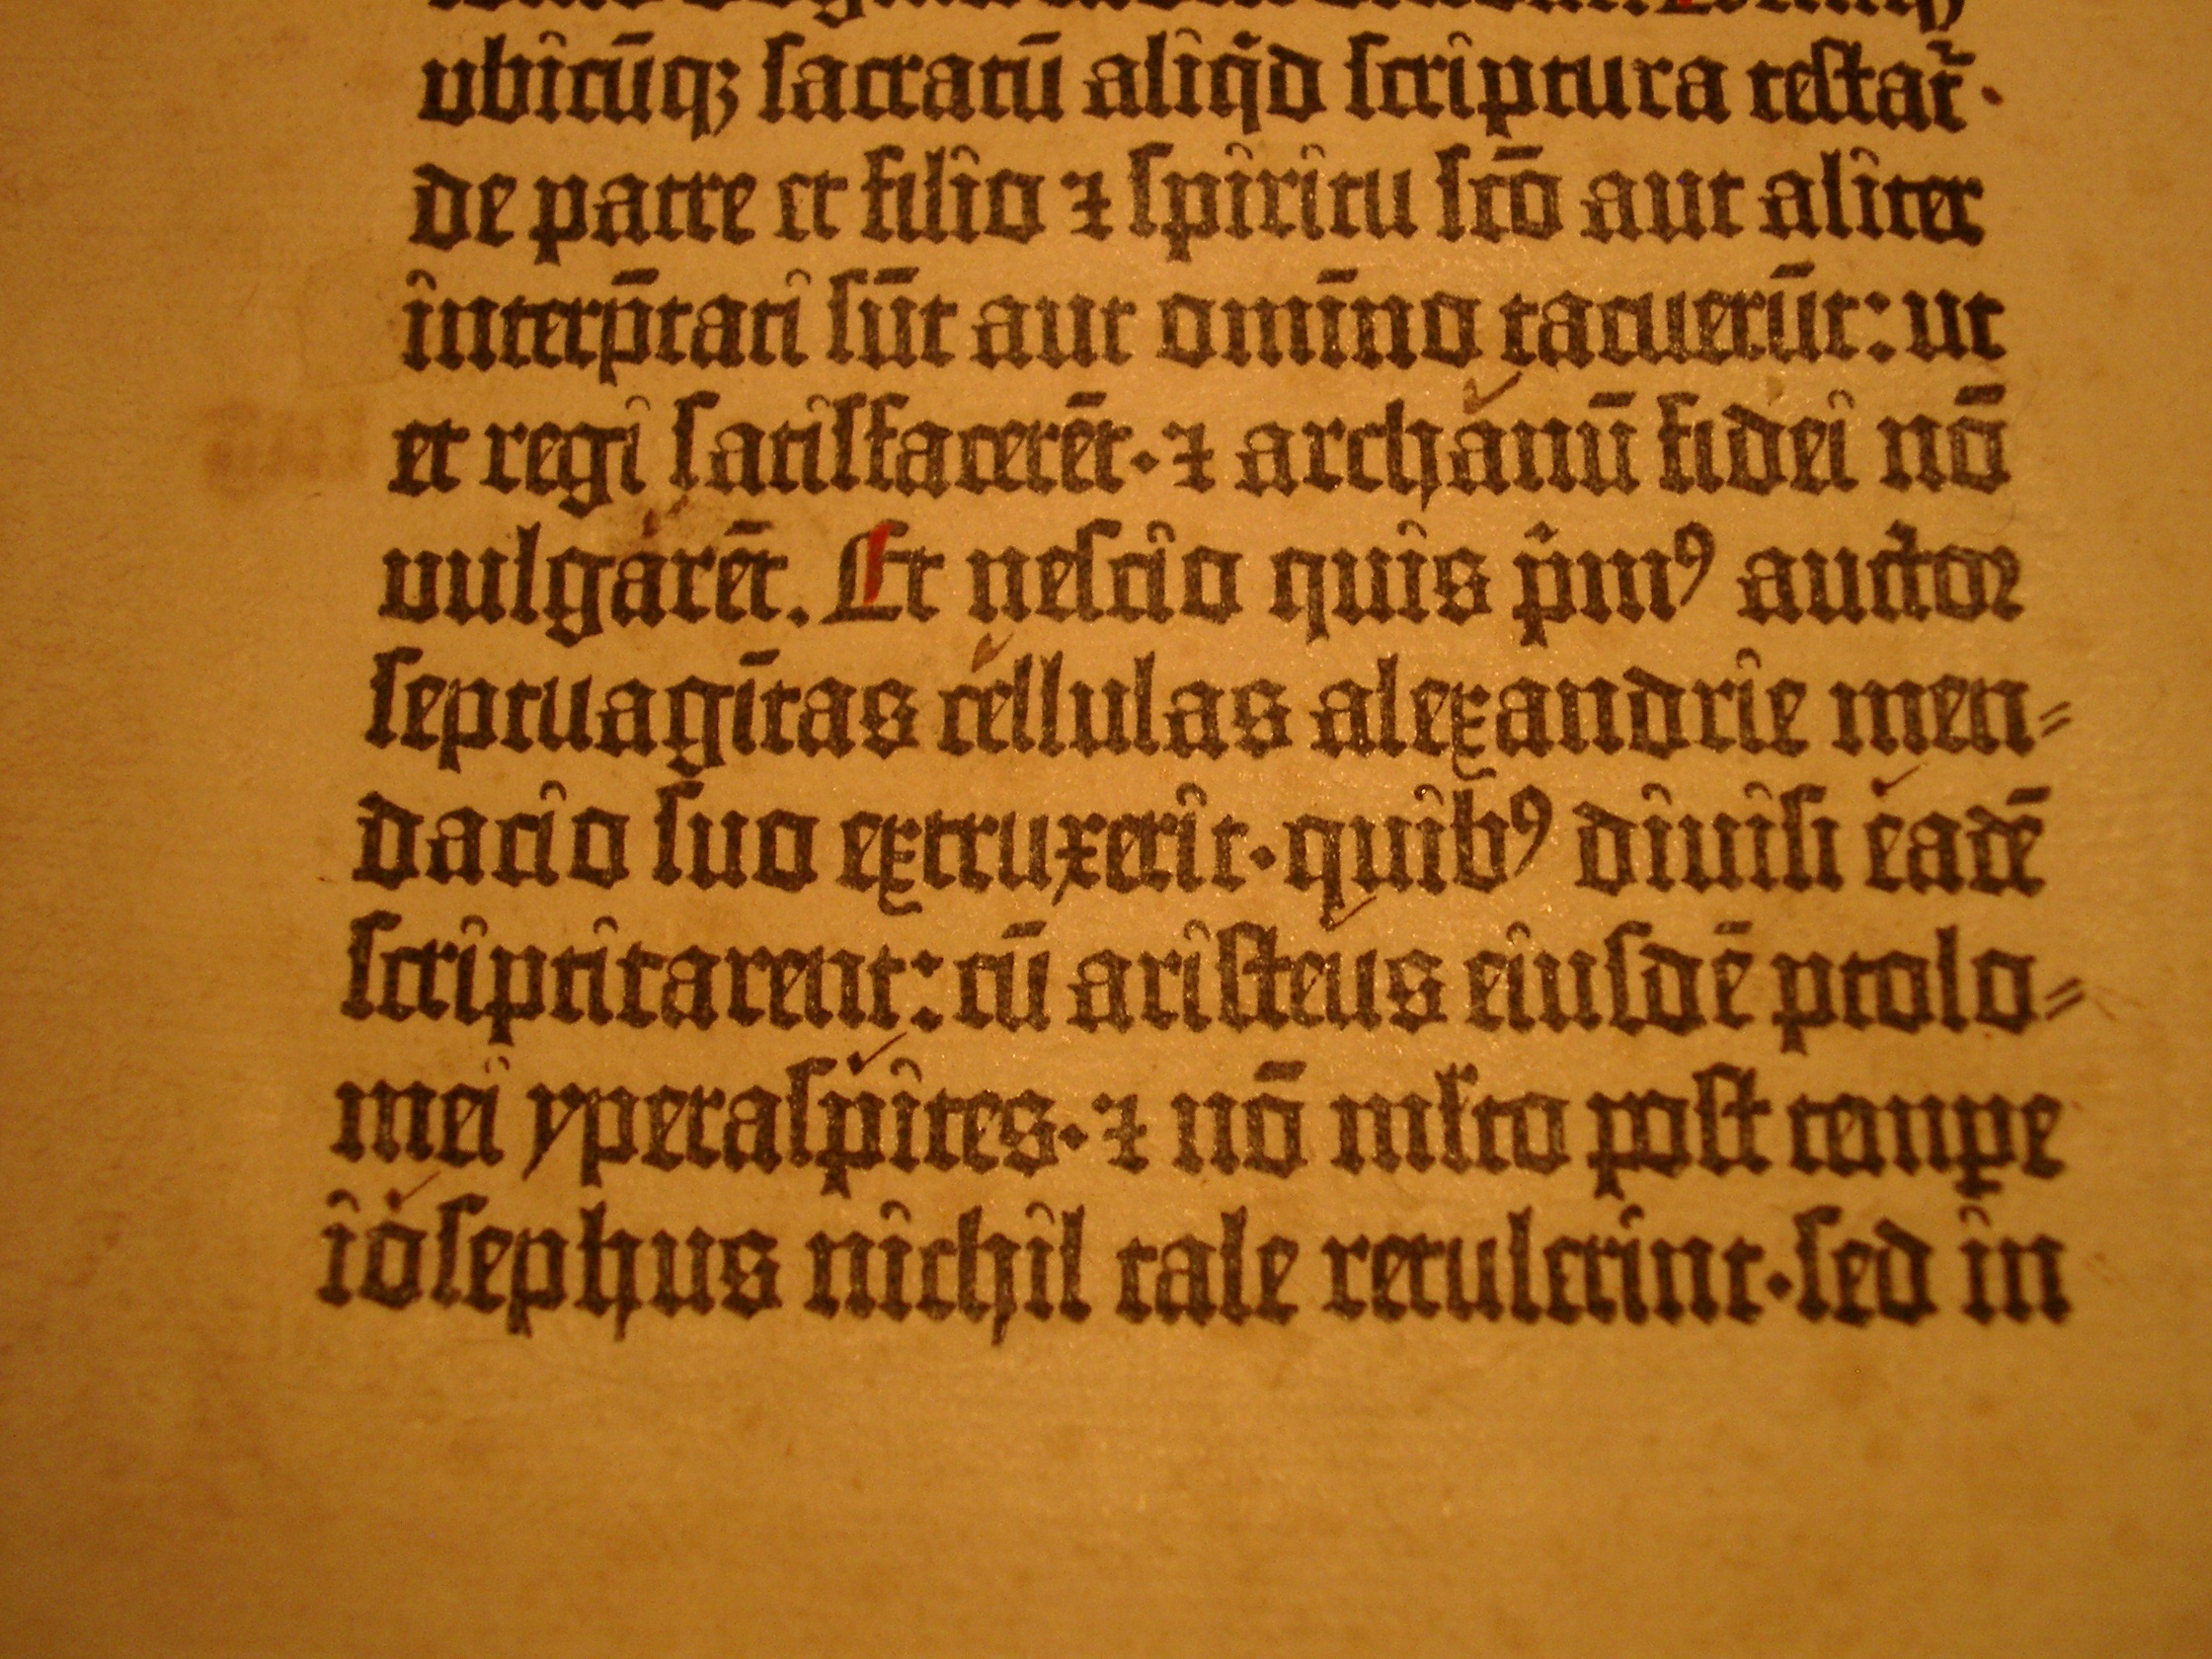 ubicūqꝫ sacratū aliqͥd scriptura testat᷑·
de patre et filio ⁊ spiritu scō aut aliter
interp̄tati sūt aut omīno tacuerūt: ut
et regi satisfacerēt·⁊ archanū fidei nō
vulgarēt. Et nescio quis pͥmꝰ auctor
septuagītas cellulas alexandrie men⸗
dacio suo extruxerit·quibꝰ diuisi eadē
scriptitarent: cū aristeus eiusdē ptolo⸗
mei yperaspites·⁊ nō ml̓to post tempe
iosephus nichil tale retulerint·sed in